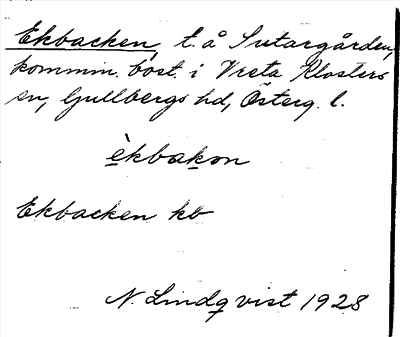 Ekbacken, t. å Sutargården,
kommin. bost. i Vreta Klosters
sn, Gullbergs hd, Österg. l.
èkbakon
Ekbacken kb
N. Lindqvist 1928